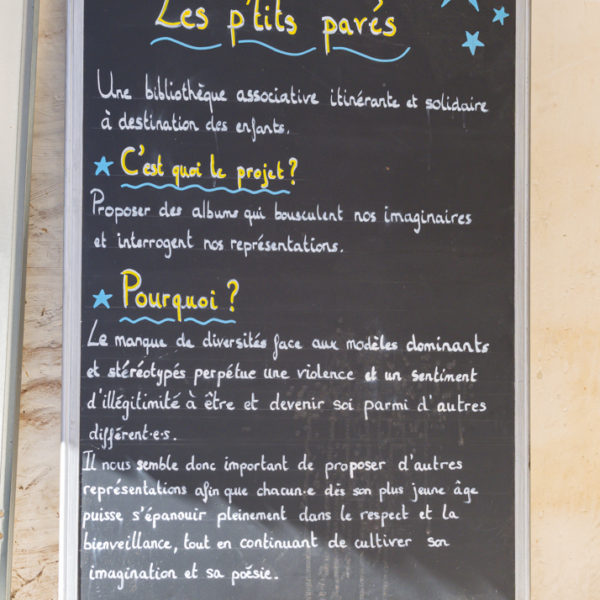 Les p'tits parés
Une bibliothèque associative itinérante et solidaire
à destination des enfants.
C'est quoi le projet ?
Proposer des albums qui bousculent nos imaginaires
et interrogent nos représentations.
Pourquoi ?
Le manque de diversités face aux modèles dominants
et stéréotypés perpétue une violence et un sentiment
d'illégitimité à être et devenir soi parmi d'autres
différent·e·s.
Il nous semble donc important de proposer d'autres
représentations afin que chacun·e dès son plus jeune âge
puisse s'épanouir pleinement dans le respect et la
bienveillance, tout en continuant de cultiver son
imagination et sa poésie.